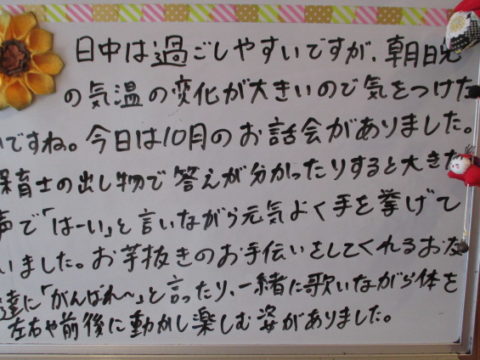 日中は過ごしやすいですが、朝晩
の気温の変化が大きいので気をつけた
いですね。今日は10月のお話会がありました。
保育士の出し物で答えが分かったりすると大きな
声で「はーい」と言いながら元気よく手を挙げて
いました。お芋抜きのお手伝いをしてくれるお友
達に「がんばれ～」と言ったり、一緒に歌いながら体を
左右や前後に動かし楽しむ姿がありました。